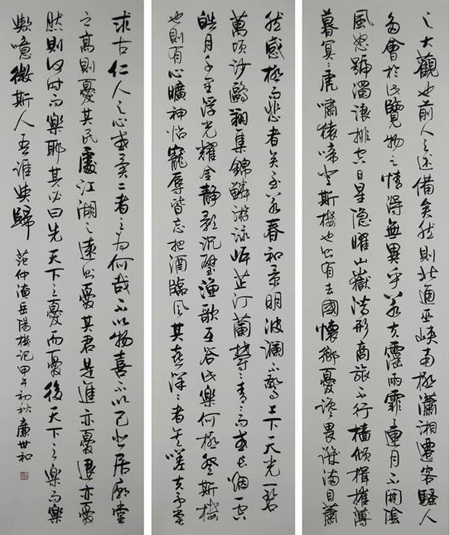 之大觀也前人之述備矣然則北通巫峽南極瀟湘遷客騷人
多會於此覽物之情得無異乎若夫霪雨霏霏連月不開陰
風怒號濁浪排空日星隱曜山嶽潛形商旅不行檣傾楫摧薄
暮冥冥虎嘯猿啼登斯樓也則有去國懷鄉憂讒畏譏滿目蕭
然感極而悲者矣至若春和景明波瀾不驚上下天光一碧
萬頃沙鷗翔集錦鱗游泳岸芷汀蘭鬱鬱青青而或長煙一空
皓月千里浮光耀金靜影沉璧漁歌互答此樂何極登斯樓
也則有心曠神怡寵辱皆忘把酒臨風其喜洋洋者矣嗟夫予嘗
求古仁人之心或異二者之為何哉不以物喜不以己悲居廟堂
之高則憂其民處江湖之遠則憂其君是進亦憂退亦憂
然則何時而樂耶其必曰先天下之憂而憂後天下之樂而樂
歟噫微斯人吾誰與歸 范仲淹岳陽樓記甲午初秋廉世和